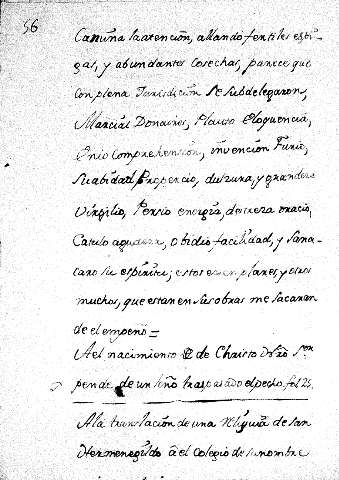 56
Camina la atencion, allando fertiles espi-
gas, y abundantes cosechas, parece que
con plena Jurisdicion se subdelegaron,
Marcial Donaires, Plauto Eloquencia,
Enio Comprehension, invención Furio,
Suabidad Propercio, dulzura, y grandeza
Virgilio, Persio energia, destreza oracio,
Catulo agudeza, Obidio facilidad, y Sana-
caro su espiritu; estos exemplares, y otros
muchos, que estan en sus obras me sacaran
de el empeño =
A el nacimiento de Christo
pende de un leño traspasado el pecho. fol 25.
A la translacion de una Reliquia de San
Hermenegildo â el Colegio de su nombre